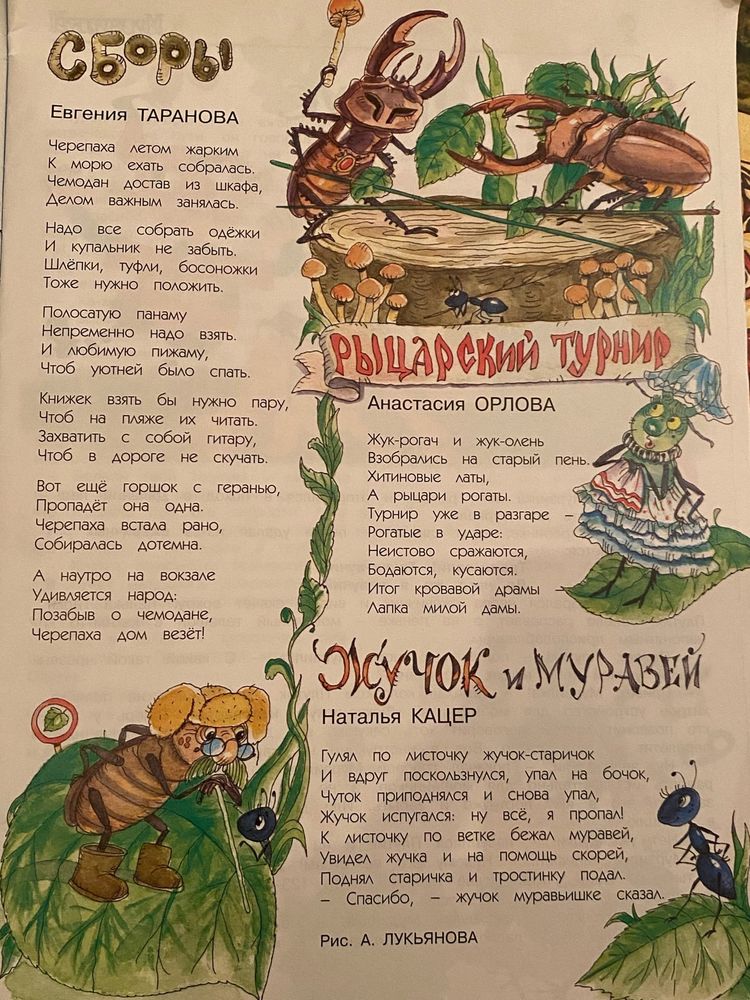 Сборы
Евгения ТАРАНОВА
Черепаха летом жарким
К морю ехать собралась.
Чемодан достав из шкафа,
Делом важным занялась.
Надо все собрать одёжки
И купальник не забыть.
Шлёпки, туфли, босоножки
Тоже нужно положить.
Полосатую панаму
Непременно надо взять.
И любимую пижаму,
Чтоб уютней было спать.
Книжек взять бы нужно пару,
Чтоб на пляже их читать.
Захватить с собой гитару,
Чтоб в дороге не скучать.
Вот ещё горшок с геранью,
Пропадёт она одна.
Черепаха встала рано,
Собиралась дотемна.
А наутро на вокзале
Удивляется народ:
Позабыв о чемодане,
Черепаха дом везёт!
РЫЦАРСКИЙ ТУРНИР
Анастасия ОРЛОВА
Жук-рогач и жук-олень
Взобрались на старый пень.
Хитиновые латы,
А рыцари рогаты.
Турнир уже в разгаре –
Рогатые в ударе:
Неистово сражаются,
Бодаются, кусаются.
Итог кровавой драмы –
Лапка милой дамы.
ЖУЧОК и МУРАВЕЙ
Наталья КАЦЕР
Гулял по листочку жучок-старичок
И вдруг поскользнулся, упал на бочок,
Чуток приподнялся и снова упал,
Жучок испугался: ну всё, я пропал!
К листочку по ветке бежал муравей,
Увидел жучка и на помощь скорей,
Поднял старичка и тростинку подал.
– Спасибо, – жучок муравьишке сказал.
Рис. А. ЛУКЬЯНОВА